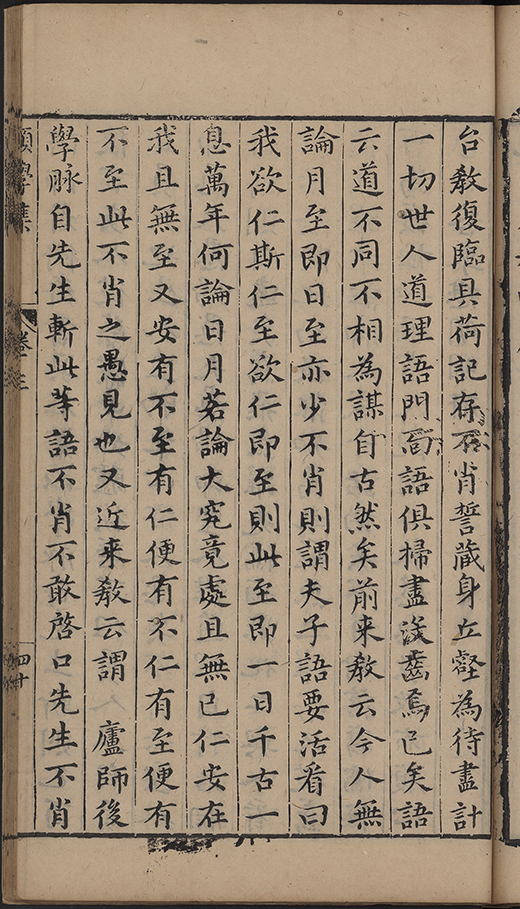 台教復臨具荷記存不肖誓藏身丘壑為待盡計
一切世人道理語門面語俱掃盡沒齒焉已矣語
云道不同不相為謀自古然矣前来教云今人無
論月至即日至亦少不肖則謂夫子語要活看曰
我欲仁斯仁至欲仁即至則此至即一日千古一
息萬年何論日月若論大究竟處且無已仁安在
我且無至又安有不至有仁便有不仁有至便有
不至此不肖之愚見也又近来教云謂 廬師後
學脉自先生斬此等語不肖不敢啓口先生不肖
願學集
卷三
四十